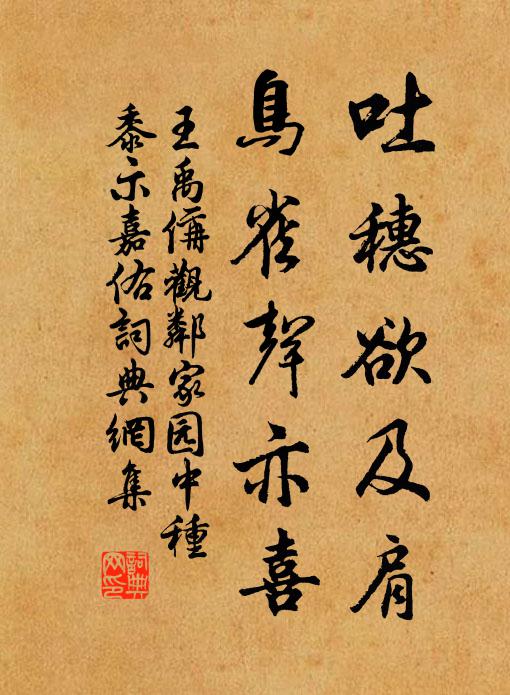 吐穗欲及肩
鳥雀聲亦喜
王禹偁觀鄰家园中種
黍示嘉佑詞典網集
詞典
网印